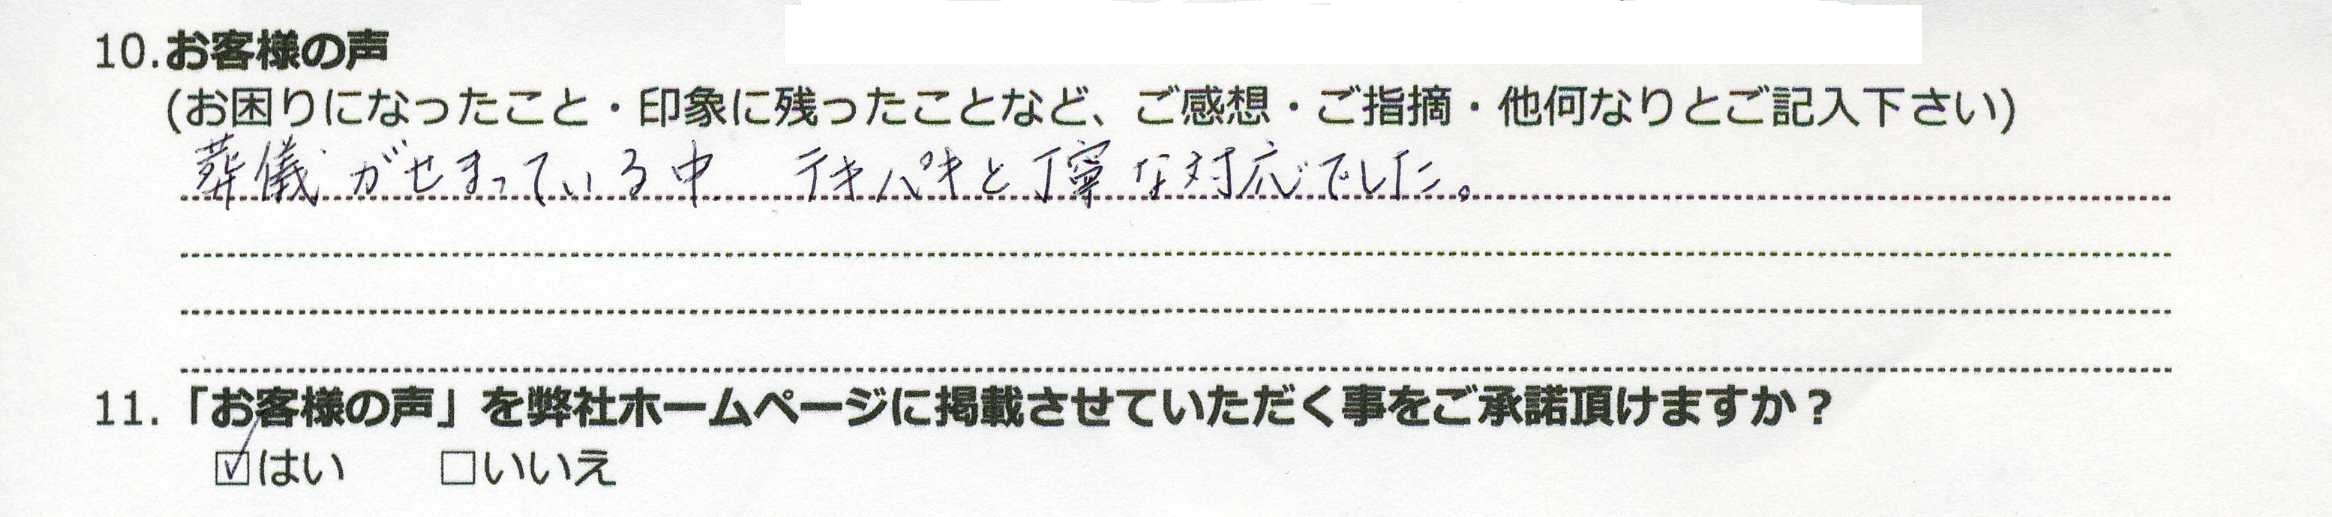 10.お客様の声
(お困りになったこと・印象に残ったことなど、ご感想・ご指摘・他何なりとご記入下さい)
葬儀がせまっている中 テキパキと丁寧な対応でした。
11.「お客様の声」を弊社ホームページに掲載させていただく事をご承諾頂けますか？
☑はい □いいえ